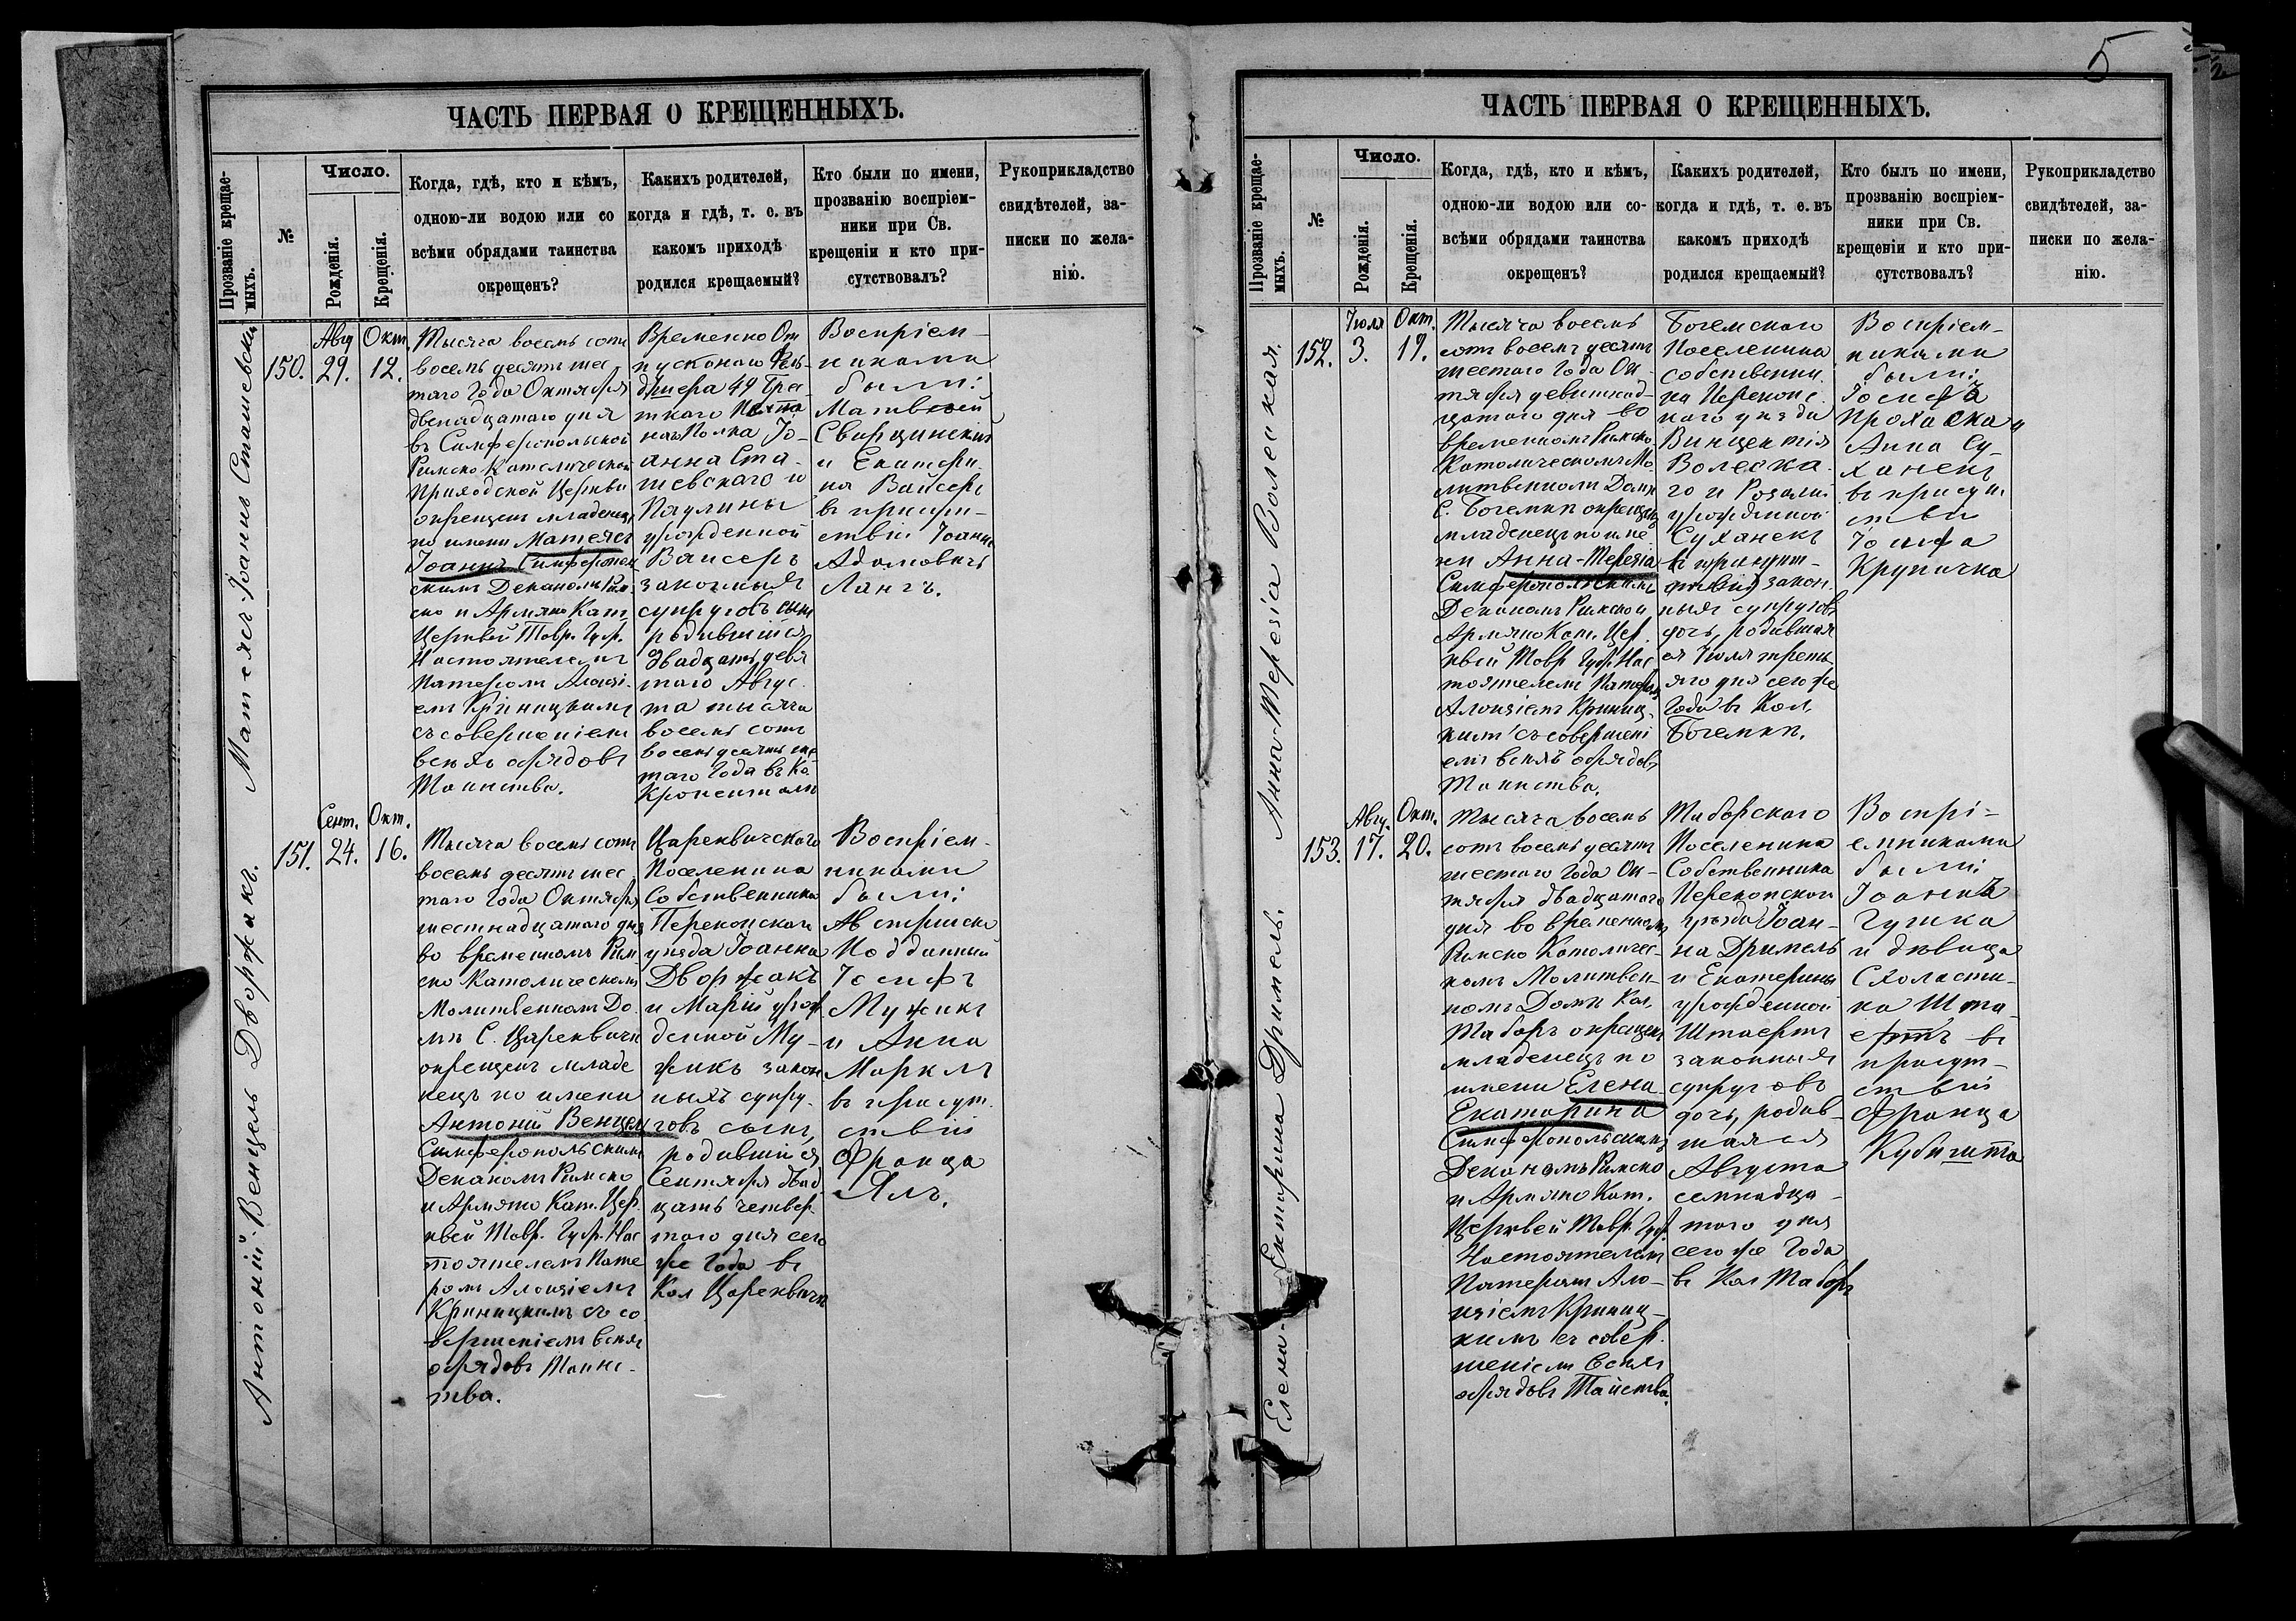 5
ЧАСТЬ ПЕРВАЯ О КРЕЩЕННЫХЪ.
Прозваніе крещае-
мыхъ.
№
Число.
Рожденія.
Крещенія.
Когда, гдѣ, кто и кѣмъ,
одною-ли водою или со
всѣми обрядами таинства
окрещенъ?
Какихъ родителей,
когда и гдѣ, т. е. въ
какомъ приходѣ
родился крещаемый?
Кто были по имени,
прозванію воспріем-
ники при Св.
крещеніи и кто при-
сутствовалъ?
Рукоприкладство
свидѣтелей, за-
писки по жела-
нію.
Матеясъ Іоаннъ Сташевскі
150.
Авг
29.
Окт.
12.
Тысяча восемь сотъ
восемь десять шес
таго Года Октября
двенадцатаго дня
въ Симферопольской
Римско Католической
Приходской Церкви
окрещенъ младенец
по имени Матеясъ
Іоаннъ Симферополь
скимъ Деканомъ Рим
ско и Армяно Кат.
Церквей Тавр. Губ.
Настоятелемъ
Патеромъ Алоизі
емъ Криницкимъ
съ совершеніемъ
всѣхъ обрядовъ
Таинства.
Временно От
пускнаго Фель
дшера 49 Брес
ткаго Пѣхо
наго Полка Іо-
анна Ста-
шевскаго и
Паулины
урожденной
Вайсеръ
законныхъ
супруговъ сынъ
родившійся
двадцать девя
таго Авгус
та тысяча
восемь сотъ
восемь десять шес
таго Года въ Ко
Кроненталь
Воспріем-
никами
были:
Матвѣй
Свирщинскій
и Екатери
на Вайсеръ
въ присут-
ствіи Іоанна
Адамовичъ
Лангъ.
Антоній-Венцель Дворжакъ.
151.
Сент.
24.
Окт.
16.
Тысяча восемь сотъ
восемь десять шес
таго Года Октября
шестнадцатаго дня
во временномъ Рим
ско Католическомъ
Молитвенномъ До
мѣ С. Цареквичи
окрещенъ младе
нецъ по имени
Антоній Венцель
Симферопольскимъ
Деканомъ Римско
и Армяно Кат. Цер
квей Тавр. Губ. Нас
тоятелемъ Пате
ромъ Алоизіемъ
Криницкимъ съ со
вершеніемъ всѣхъ
обрядовъ Таинс-
тва.
Цареквичскаго
Поселенина
Собственника
Перекопскаго
уѣзда Іоанна
Дворжакъ
и Маріи урож
денной Му-
жикъ закон
ныхъ супру-
говъ сынъ,
родившійся
Сентября двад
цать четвер
таго дня сего
же Года въ
Кол Цареквичи
Воспріем-
никами
были:
Австрійско
Подданный
Іосифъ
Мужикъ
и Анна
Маркль
въ присут
ствіи
Франца
Яль.
ЧАСТЬ ПЕРВАЯ О КРЕЩЕННЫХЪ.
Прозваніе крещае-
мыхъ.
№
Число.
Рожденія.
Крещенія.
Когда, гдѣ, кто и кѣмъ,
одною-ли водою или со-
всѣми обрядами таинства
окрещенъ?
Какихъ родителей,
когда и гдѣ, т. е. въ
какомъ приходѣ
родился крещаемый?
Кто былъ по имени,
прозванію воспріем-
ники при Св.
крещеніи и кто при-
сутствовалъ?
Рукоприкладство
свидѣтелей, за-
писки по жела-
нію.
Анна-Терезіа Волеская.
152.
Іюля
3.
Окт.
19.
Тысяча восемь
сотъ восемь десять
шестаго Года Ок-
тября девятнад-
цатаго дня во
временномъ Римско
Католическомъ Мо
литвенномъ Домѣ
С. Богемки окрещенъ
младенецъ по име
ни Анна-Терезіа
Симферопольскимъ
Деканомъ Римско и
Армяно Кат. Цер
квей Тавр Губ. Нас
тоятелемъ Патеромъ
Алоизіемъ Криниц-
кимъ съ совершені
емъ всѣхъ обрядовъ
Таинства.
Богемскаго
Поселенина
собственни
ка Перекопс
каго уѣзда
Винцентія
Волеска
го и Розаліи
урожденной
Суханекъ
в присут-
ствіи закон
ныхъ супруговъ
дочь, родившая
ся Іюля треть
яго дня сего же
Года въ Кол.
Богемки.
Воспріем-
никами
были:
Іосифъ
Прохаска и
Анна Су-
ханекъ
въ присут
ствіи
Іосифа
Крупичка
Елена-Екатарина Дримель.
153.
Авгу.
17.
Окт.
20.
Тысяча восемь
сотъ восемь десять
шестаго Года Ок-
тября двадцатаго
дня во временномъ
Римско Католичес-
комъ Молитвен-
номъ Домѣ Кол.
Таборъ окрещенъ
младенецъ по
имени Елена
Екатарина
Симферопольскимъ
Деканомъ Римско
и Армяно Кат.
Церквей Тавр. Губ.
Настоятелемъ
Патеромъ Ало-
изіемъ Криниц-
кимъ съ совер
шеніемъ всѣхъ
обрядовъ Таинства.
Таборскаго
Поселенина
Собственника
Перекопскаго
уѣзда Іоан-
на Дримель
и Екатерины
урожденной
Штаертъ
законныхъ
супруговъ
дочь, родив-
шаяся
Августа
семнадца-
таго дня
сего же Года
въ Кол Таборъ
Воспрі-
емниками
были:
Іоаннъ
Гушка
и дѣвица
Схоласти-
ка Шта-
ертъ въ
присут-
ствіи
Франца
Кубишта